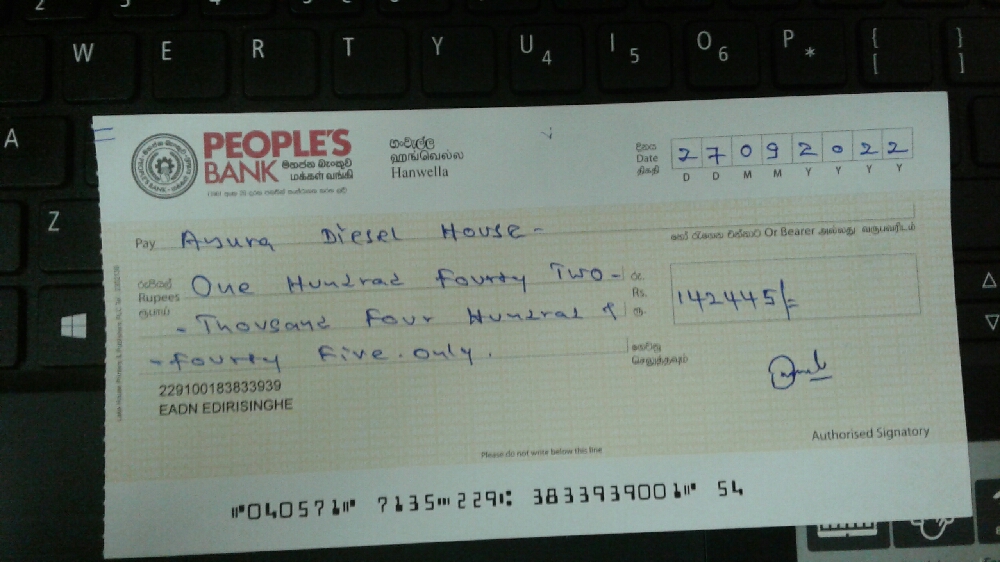 W E R T Y U 4 I 5 O 6 P * { [ } ]
A
Z
PEOPLE'S
BANK මහජන බැංකුව
மக்கள் வங்கி
හංවැල්ල
ஹங்வெல்ல
Hanwella
දිනය
Date
திகதி
2 7 0 9 2 0 2 2
D D M M Y Y Y Y
Pay Anura Diesel House -
හෝ රැගෙන එන්නාට Or Bearer அல்லது வருபவரிடம்
රුපියල්
Rupees
ரூபாய்
One Hundrad Fourty Two -
- Thousand Four Hundrad &
- fourty Five. only.
රු.
Rs.
ரூ.
142445/=
ගෙවනු
செலுத்தவும்
229100183833939
EADN EDIRISINGHE
Authorised Signatory
Please do not write below this line
⑈040571⑈ 7135⑉229⑆ 3833939001⑈ 54